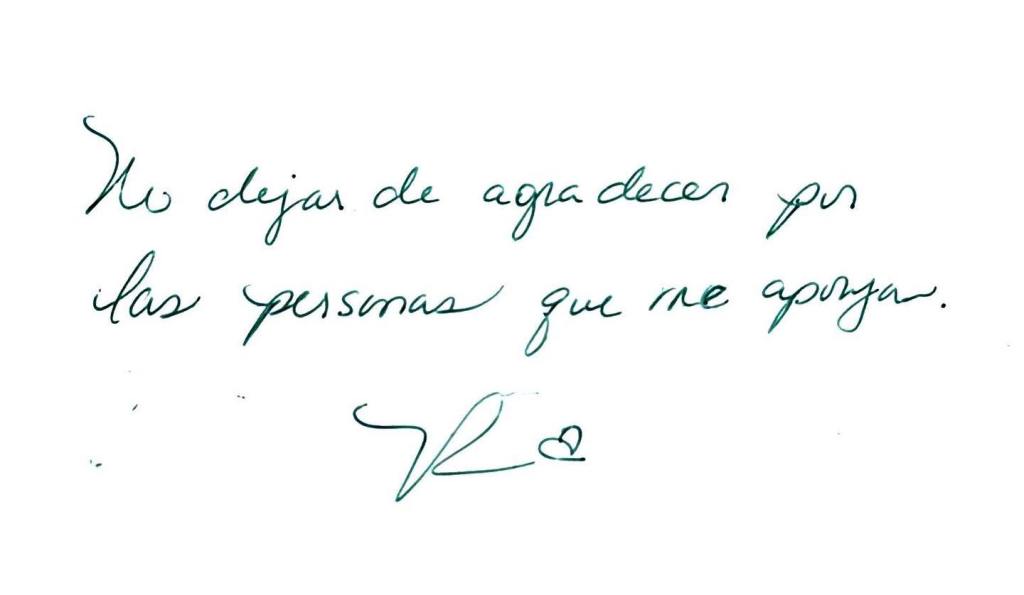 No dejar de agradecer por
las personas que me apoyan.